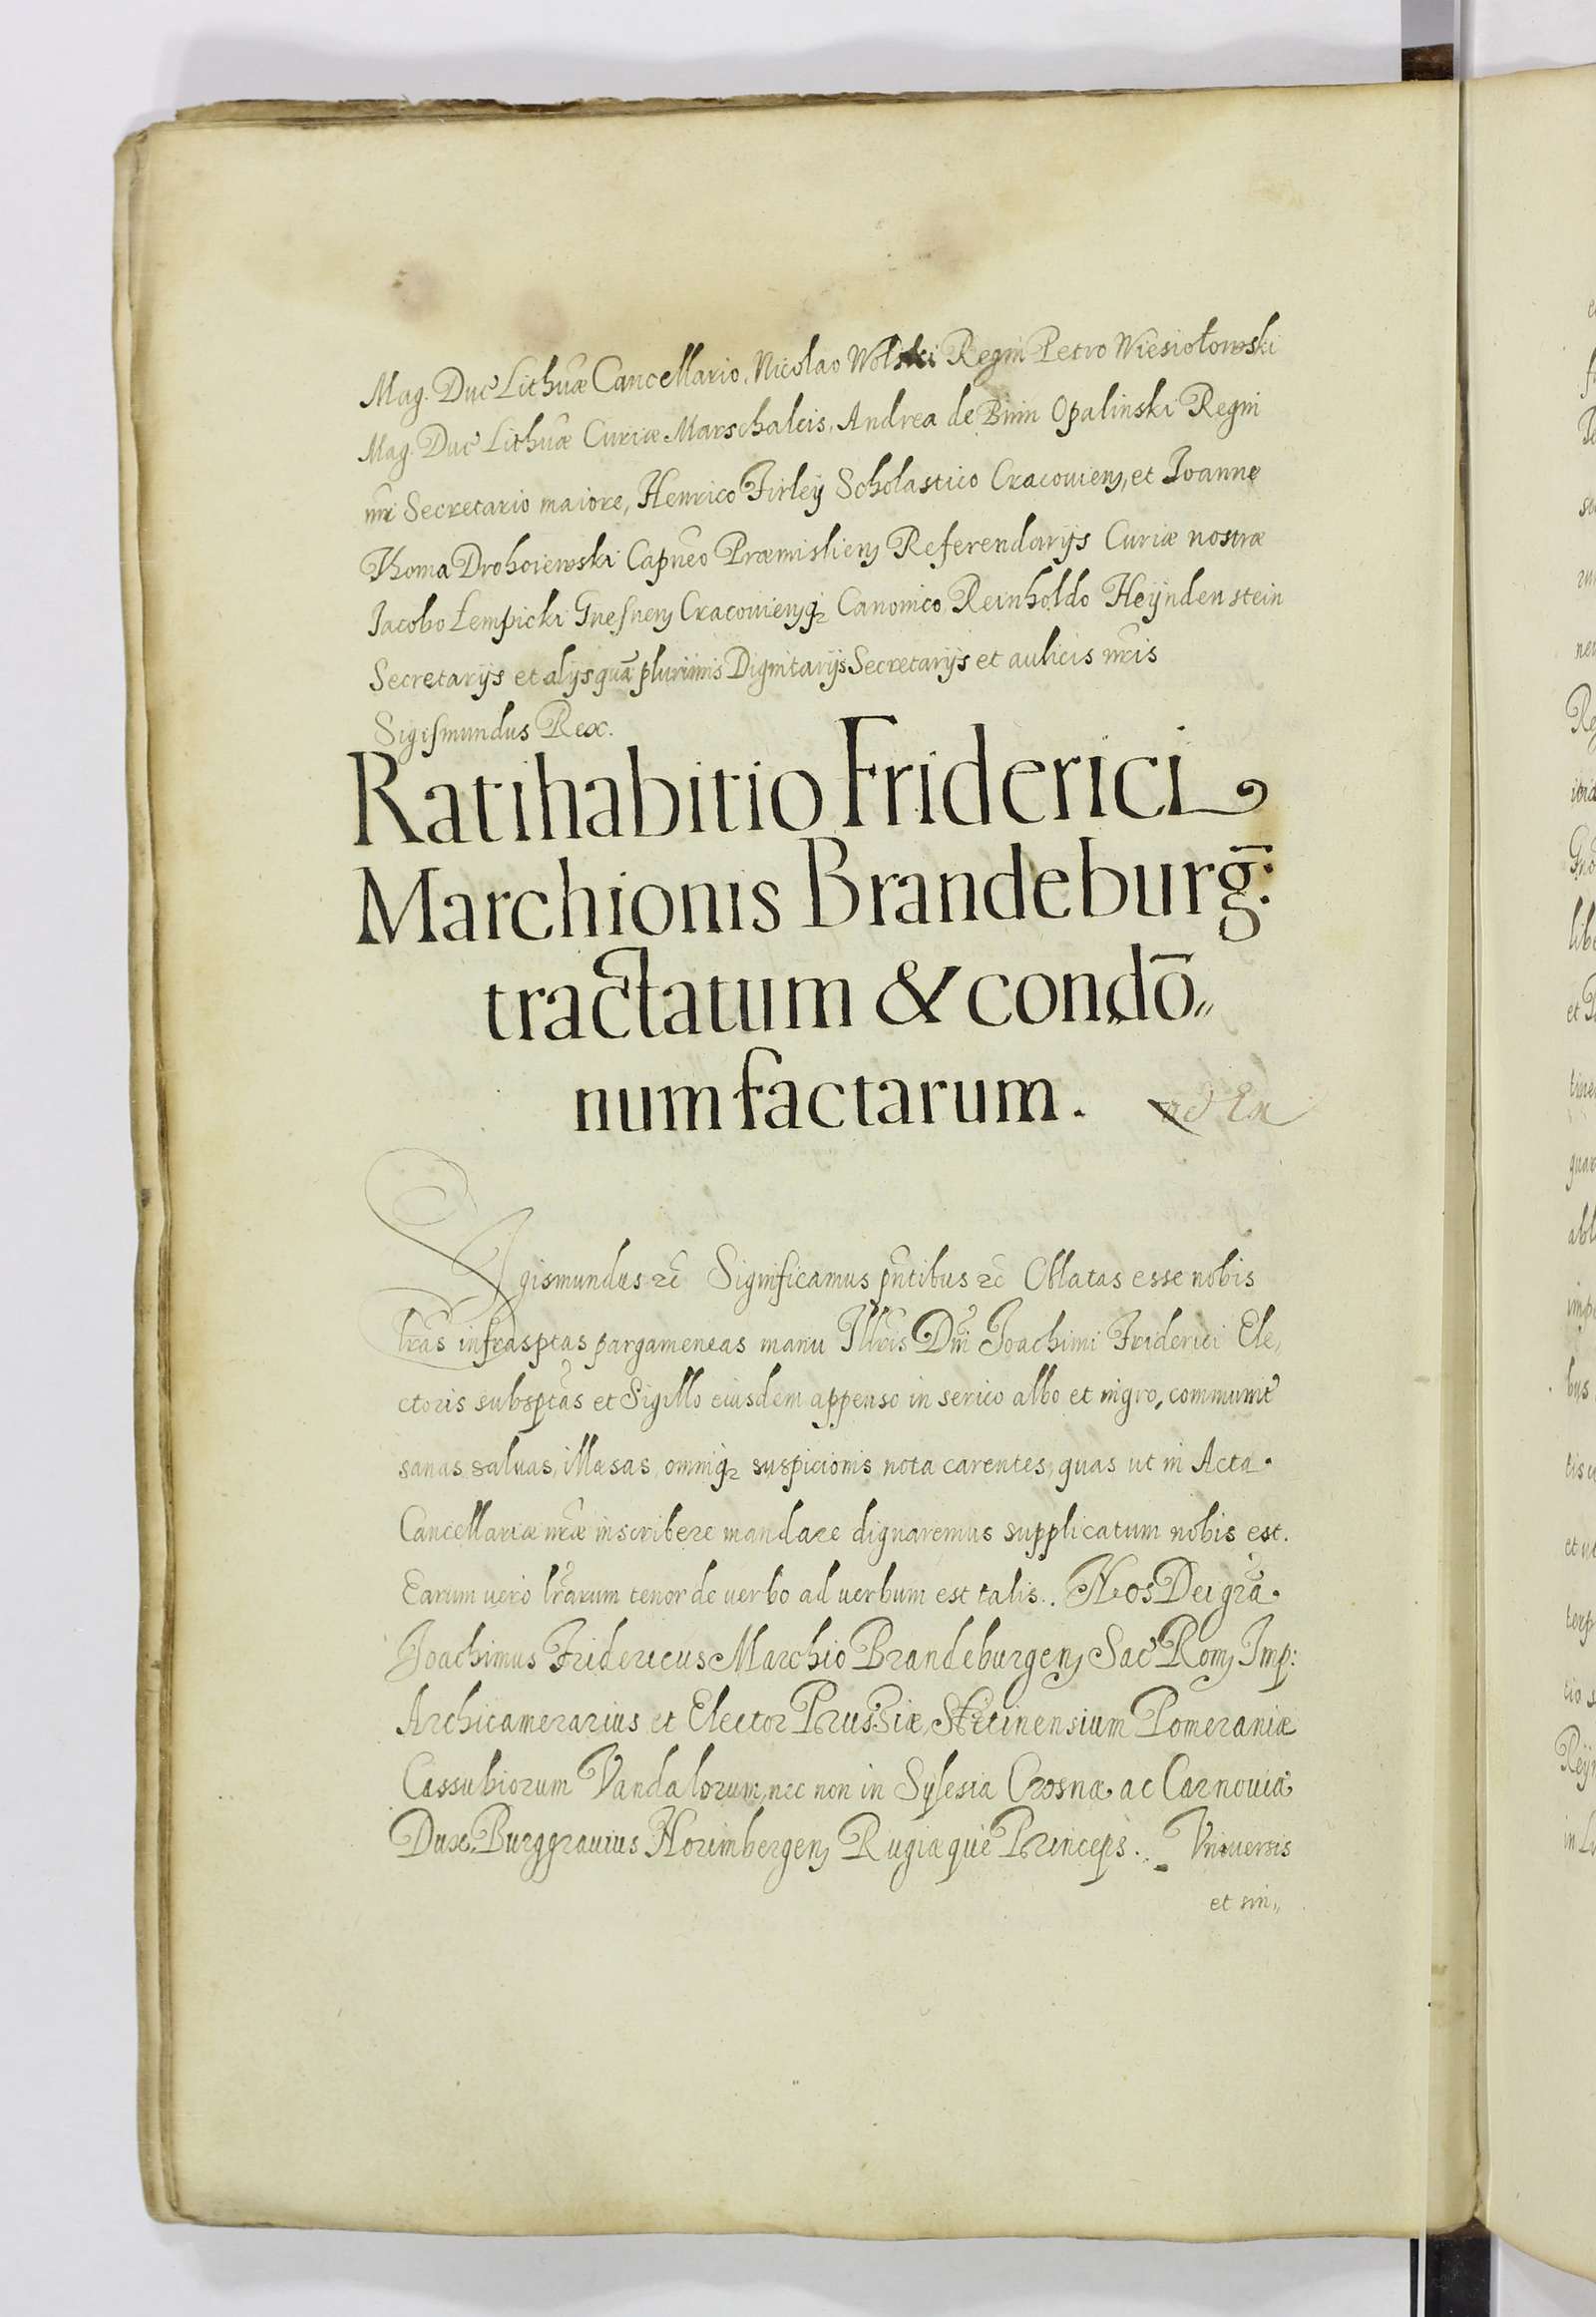 Mag. Duc Lithuæ Cancellario, Nicolao Wolski Regni Petro Wiesiołowski
Mag. Duc Lithuæ Curiæ Marschalcis, Andrea de Bnin Opalinski Regni
nri Secretario maiore, Henrico Firleÿ Scholastico Cracouiens, et Joanne
Thoma Drohoiewski Capneo Præmisliens Referendarÿs Curiæ nostræ
Jacobo Łempicki Gnesnens Cracouiensq₃ Canonico Reinholdo Heÿndenstein
Secretarÿs et alÿs quā plurimis Dignitarÿs Secretarÿs et aulicis nris
Sigismundus Rex.
Ratihabitio Friderici
Marchionis Brandeburg̅:
tractatum & condō„
num factarum.
Sigismundus ꝛc̃ Significamus pñtibus ꝛc̃ Oblatas esse nobis
lras infrasptas pargameneas manu Illris Dni Joachimi Friderici Ele,
ctoris subsptas et Sigillo eiusdem appenso in serico albo et nigro, communit
sanas saluas, illæsas, omniq₃ suspicionis nota carentes, quas ut in Acta
Cancellariæ nræ inscribere mandare dignaremus supplicatum nobis est.
Earum vero lrarum tenor de uerbo ad uerbum est talis. Nos Dei gra
Joachimus Fridericus Marchio Brandeburgens Sac Rom Imp:
Archicamerarius et Elector Prussiæ, Stetinensium Pomeraniæ
Cassubiorum Vandalorum, nec non in Sÿlesia Crosnæ ac Carnouiæ
Dux, Burggrauius Norimbergens Rugiæque Princeps. Vniuersis
et sin„